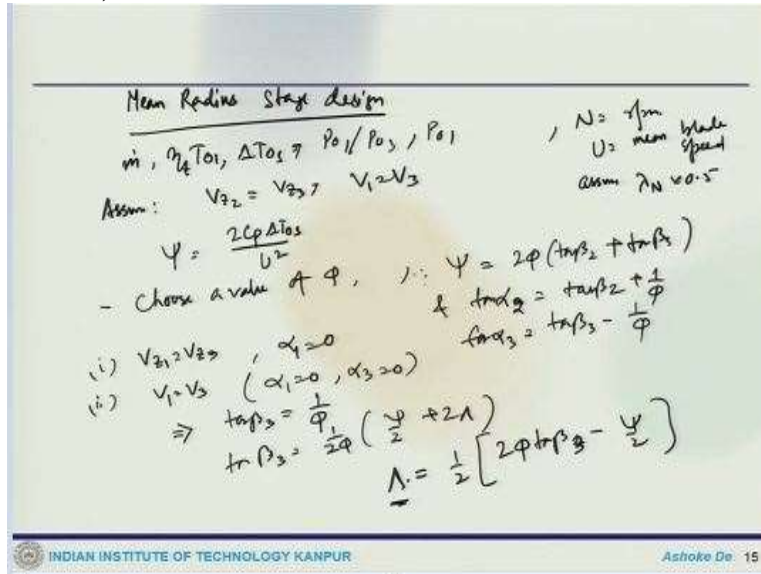 Mean Radius Stage design
ṁ, η_t T01, ΔT0s, P01/P03, P01 , N= rpm
U= mean blade speed
Assum: Vz2 = Vz3, V1=V3 assum λN ≈ 0.5
ψ = 2CpΔT0s / U²
- Choose a value of φ, ∴ ψ = 2φ(tanβ2 + tanβ3)
& tanα2 = tanβ2 + 1/φ
tanα3 = tanβ3 - 1/φ
(i) Vz1=Vz3, α1=0
(ii) V1=V3 (α1=0, α3=0)
⇒ tanβ3 = 1/φ
tanβ3 = 1/2φ (ψ/2 + 2Λ)
Λ = 1/2 [2φtanβ3 - ψ/2]
INDIAN INSTITUTE OF TECHNOLOGY KANPUR Ashoke De 15